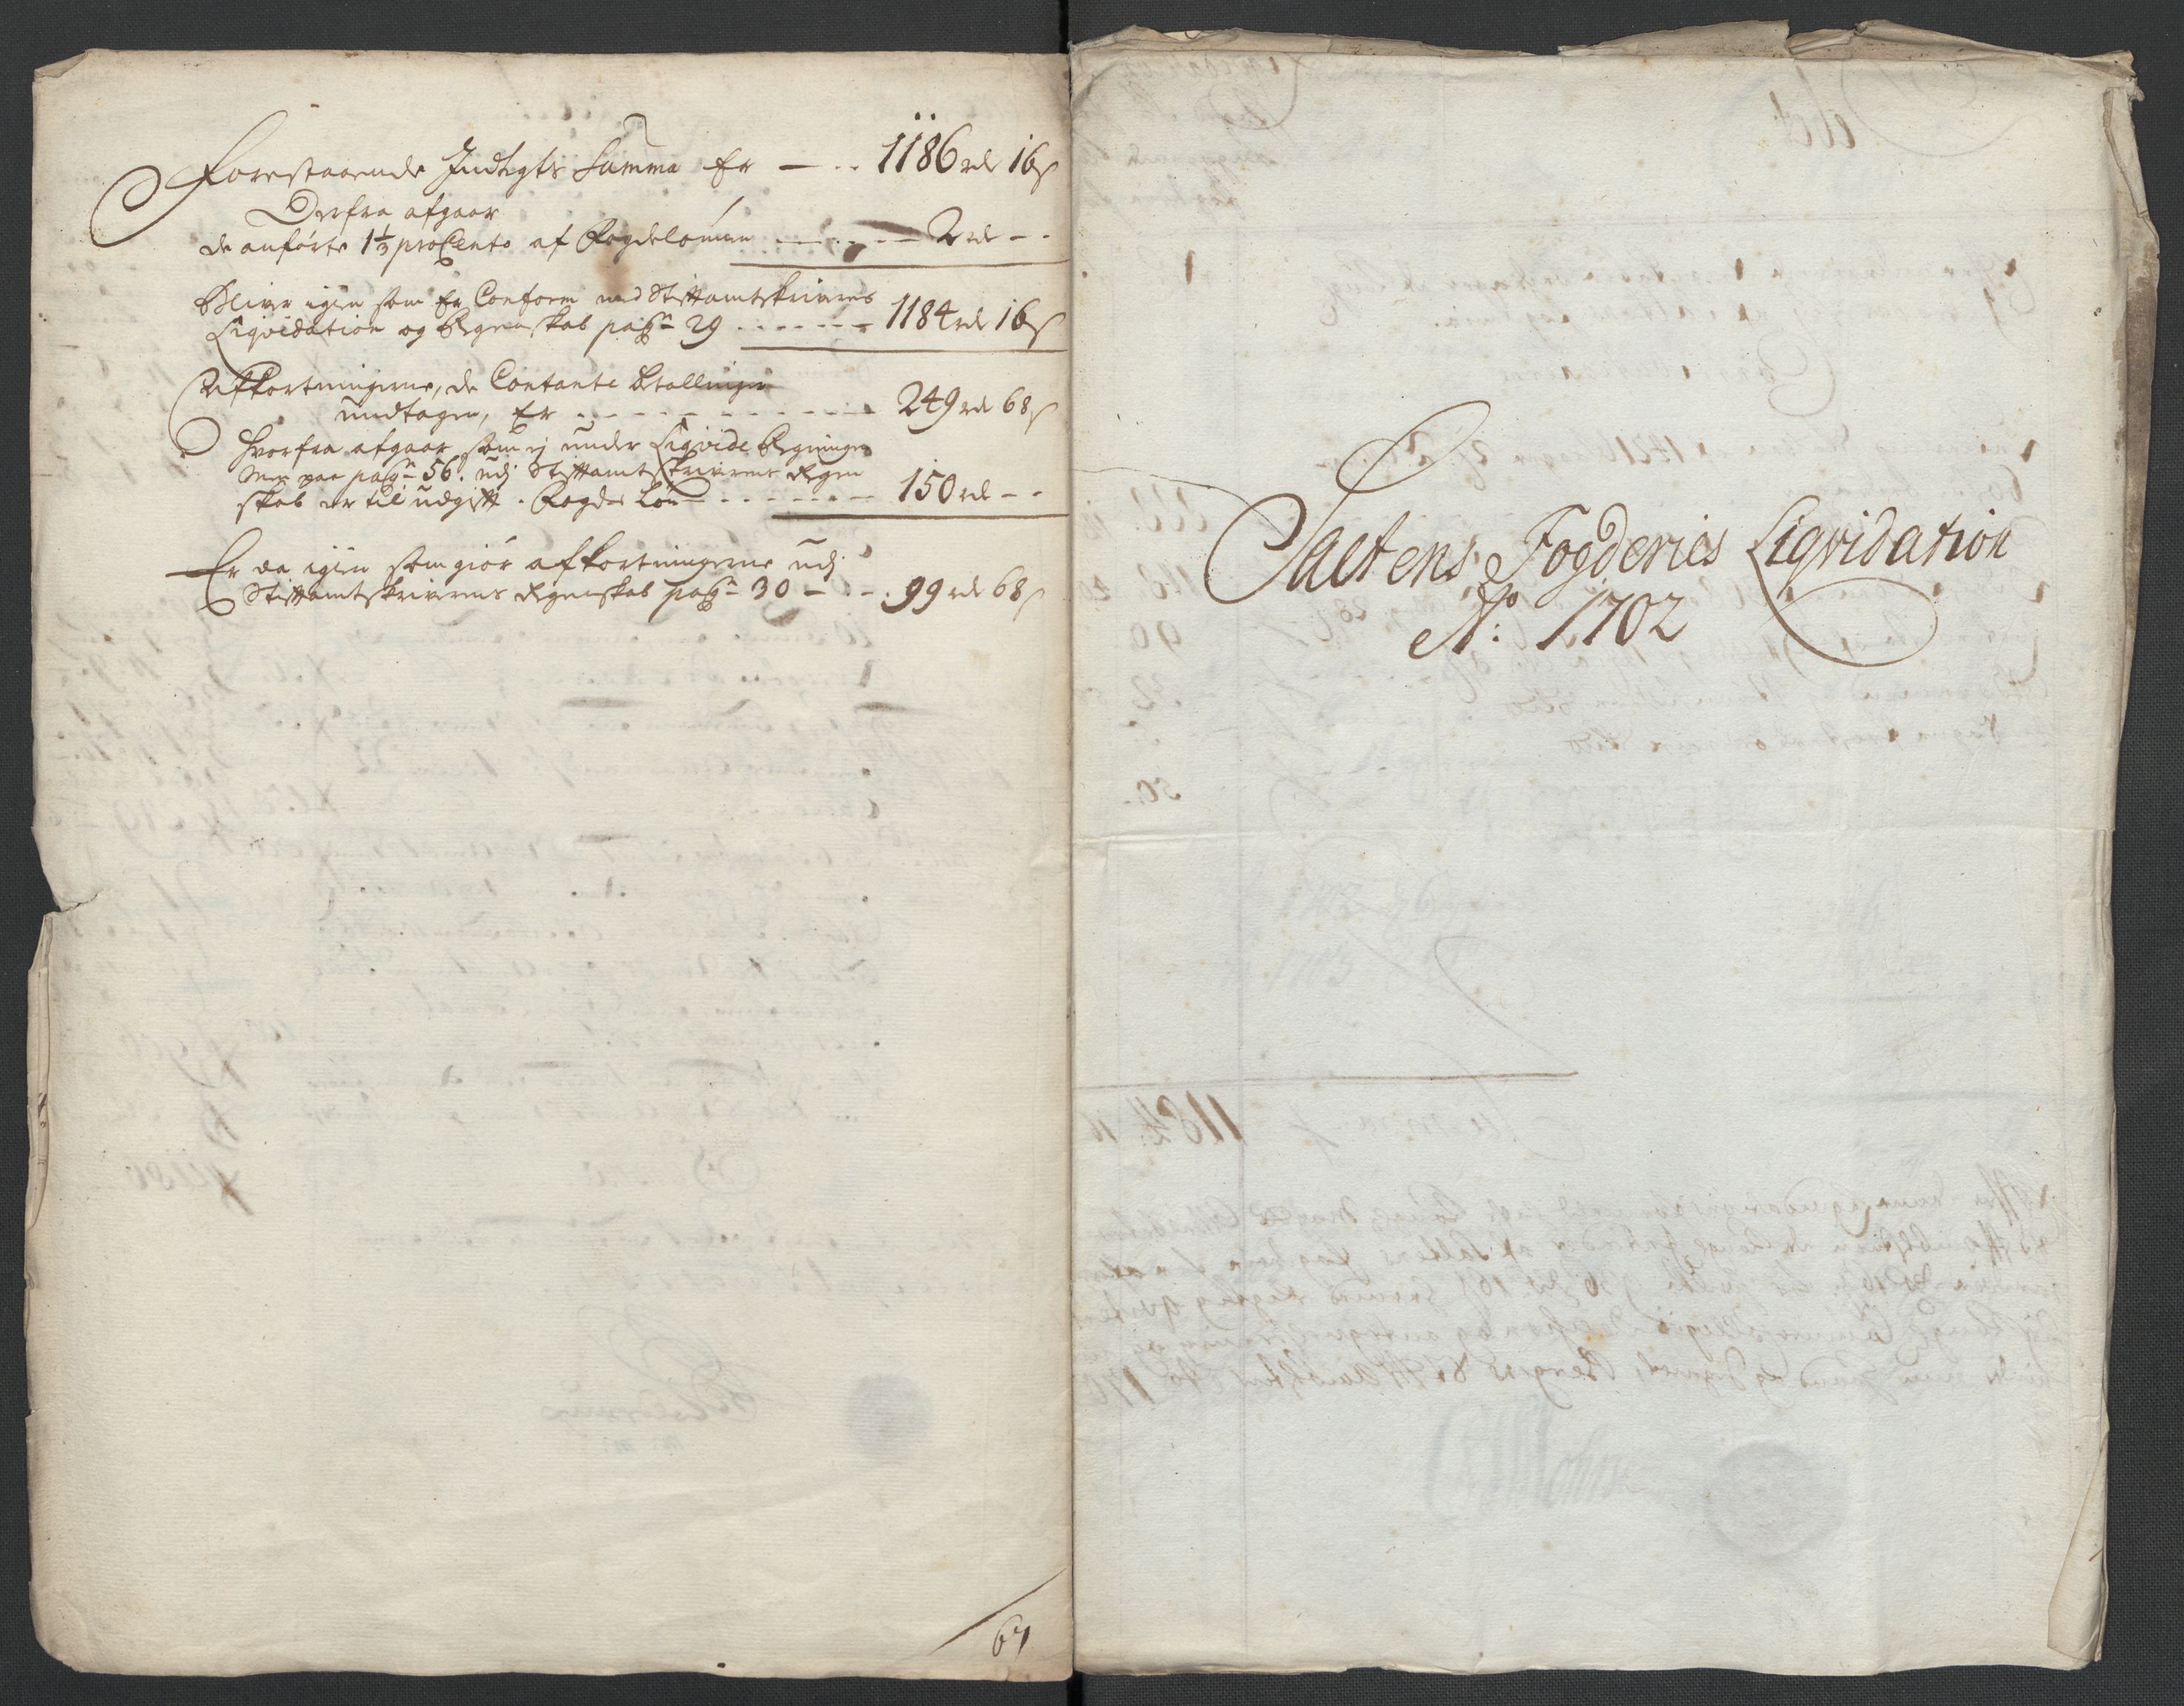 Forestaaende Indtegts Summa Er — . . 1186 rdr 16 ß
Derfra afgaar
de anførte 1⅓ pro Cento af Fogdelønnen — . — . — — 2 rdr - -
Bliver igien som Er Conform med Stiftamtskrifvens
Liqvidation og Regenskab pagª 29 . - - - - - 1184 rdr 16 ß
Afkortningerne, de Contante betallinger
undtagen, Er - - - - - - - - - 249 rdr 68 ß
hvorfra afgaar som ej under Liqvide Regninger
men paa pagª 56. udj Stiftamtskrifverens Regen
skab er til udgift . Fogdes Løn - - - - - - 150 rdr - -
Er da igien som giør afkortningerne udj
Stiftamtskrifverens Regenskab pagª 30 — . - . 99 rdr 68 ß
67
Saltens Fogderies Liqvidation
Aº: 1702